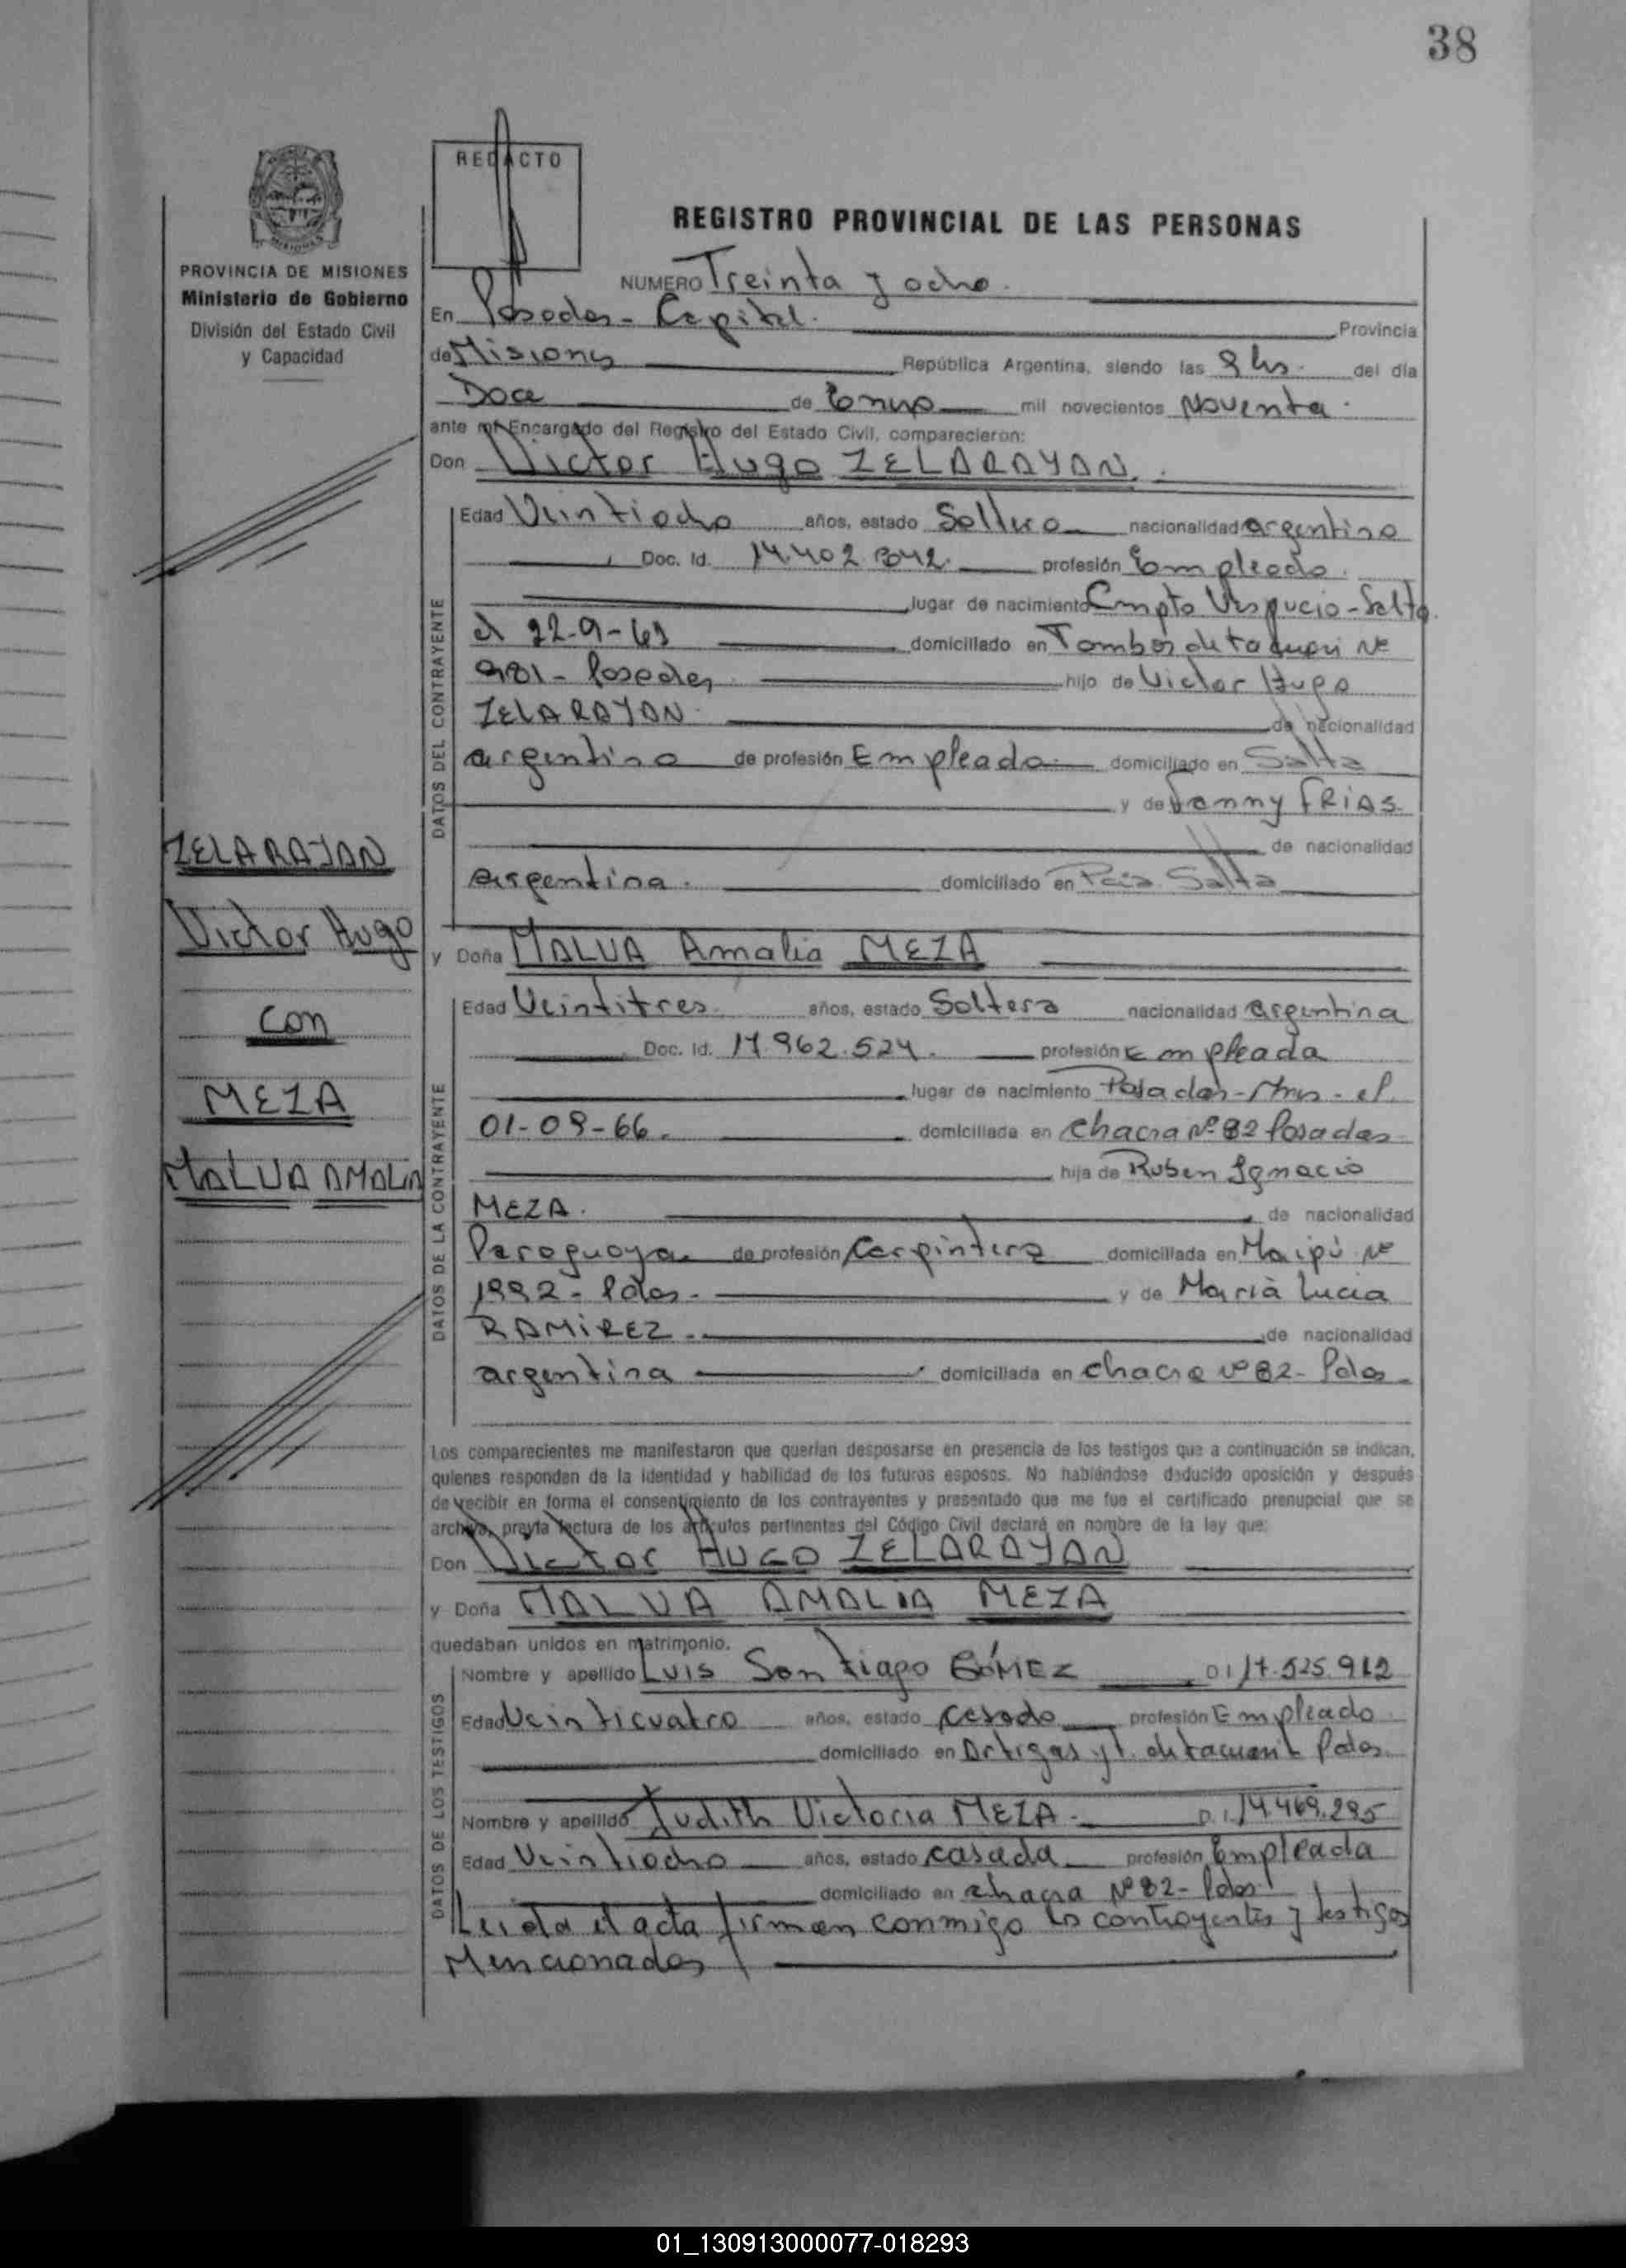 38
REDACTO
REGISTRO PROVINCIAL DE LAS PERSONAS
PROVINCIA DE MISIONES
Ministerio de Gobierno
División del Estado Civil
y Capacidad
NUMERO Treinta y ocho.
En Posadas - Capital. Provincia
de Misiones República Argentina, siendo las 9 hs. del día
Doce de Enero mil novecientos Noventa.
ante mí Encargado del Registro del Estado Civil, comparecieron:
Don Victor Hugo ZELARAYAN.
DATOS DEL CONTRAYENTE
Edad Veintiocho años, estado Soltero nacionalidad argentino
Doc. Id. profesión Empleado.
lugar de nacimiento Cmpto Vespucio - Salta
el 22-9-61 domiciliado en Tambor de Tacuari Nº
981 - Posadas hijo de Victor Hugo
ZELARAYAN de nacionalidad
argentino de profesión Empleado domiciliado en Salta
y de Fanny FRIAS.
de nacionalidad
argentina. domiciliado en Pcia. Salta
ZELARAYAN
Victor Hugo
con
MEZA
MALUA AMALIA
y Doña MALUA Amalia MEZA
DATOS DE LA CONTRAYENTE
Edad Veintitres. años, estado Soltera nacionalidad argentina
Doc. Id. 17.962.524. profesión Empleada
lugar de nacimiento Posadas - Mnes - el
01-09-66. domiciliada en Chacra Nº 82 Posadas
hija de Ruben Ignacio
MEZA. de nacionalidad
Paraguaya de profesión Carpintero domiciliada en Maipú Nº
1992 - Pdas. y de Marià Lucia
RAMIREZ. de nacionalidad
argentina domiciliada en chacra Nº 82 - Pdas.
Los comparecientes me manifestaron que querían desposarse en presencia de los testigos que a continuación se indican,
quienes responden de la identidad y habilidad de los futuros esposos. No habiéndose deducido oposición y después
de recibir en forma el consentimiento de los contrayentes y presentado que me fue el certificado prenupcial que se
archiva, previa lectura de los artículos pertinentes del Código Civil declaré en nombre de la ley que:
Don Victor HUGO ZELARAYAN
y Doña MALUA AMALIA MEZA
quedaban unidos en matrimonio.
DATOS DE LOS TESTIGOS
Nombre y apellido Luis Santiago GÓMEZ DI 17.525.912
Edad Veinticuatro años, estado casado profesión Empleado
domiciliado en Artigas y T. de tacuari Pdas.
Nombre y apellido Judith Victoria MEZA. D.I. 14.469.295
Edad Veintiocho años, estado casada profesión Empleada
domiciliado en chacra Nº 82 - Pdas.
Leida el acta firman conmigo los contrayentes y testigos
Mencionados
01_130913000077-018293